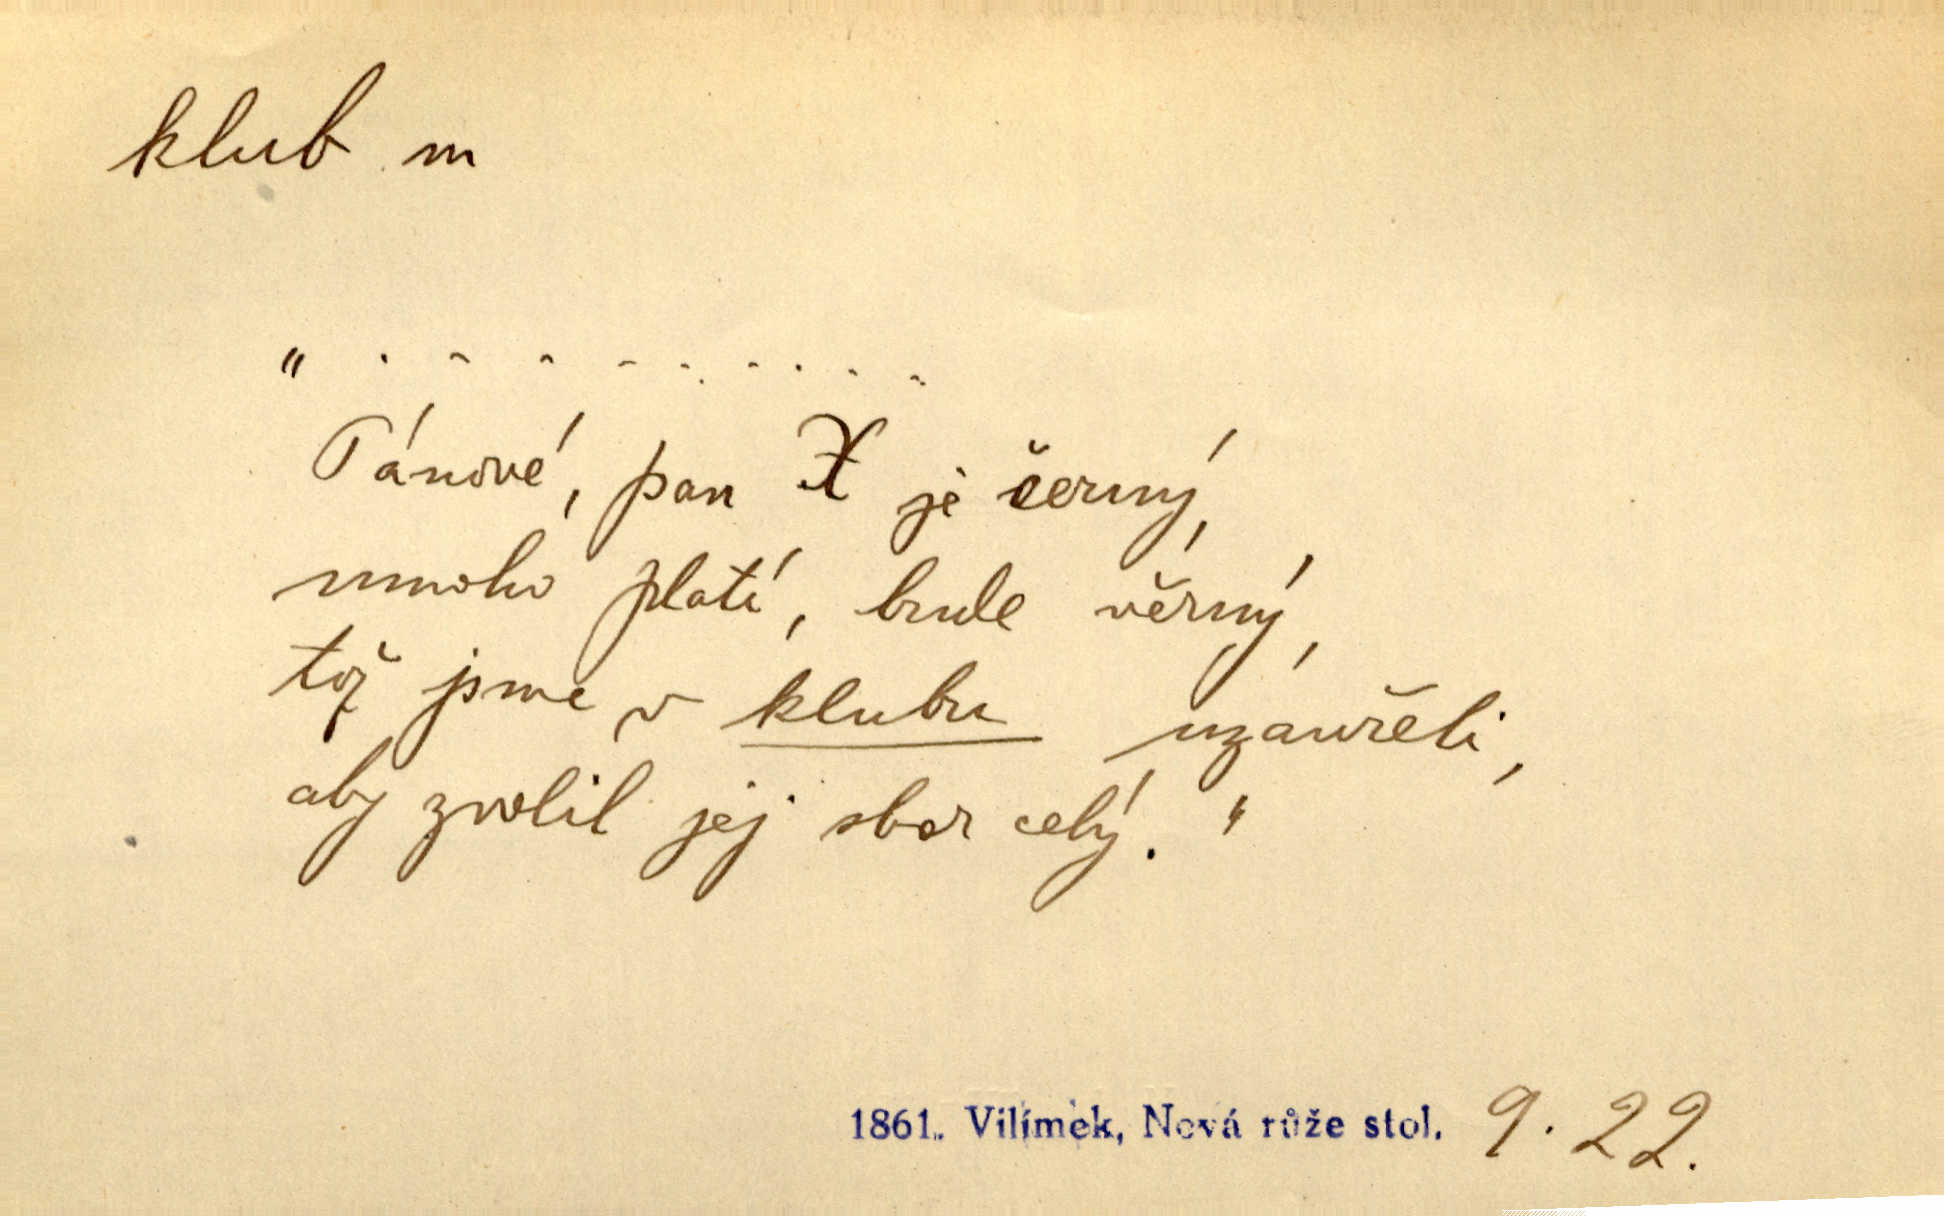 klub m
" . . . . . . . . .
Pánové, pan X je černý,
mnoho platí, bude věrný,
tož jsme v klubu uzavřeli,
aby zvolil jej sbor celý. "
1861. Vilímek, Nová růže stol. 9. 22.